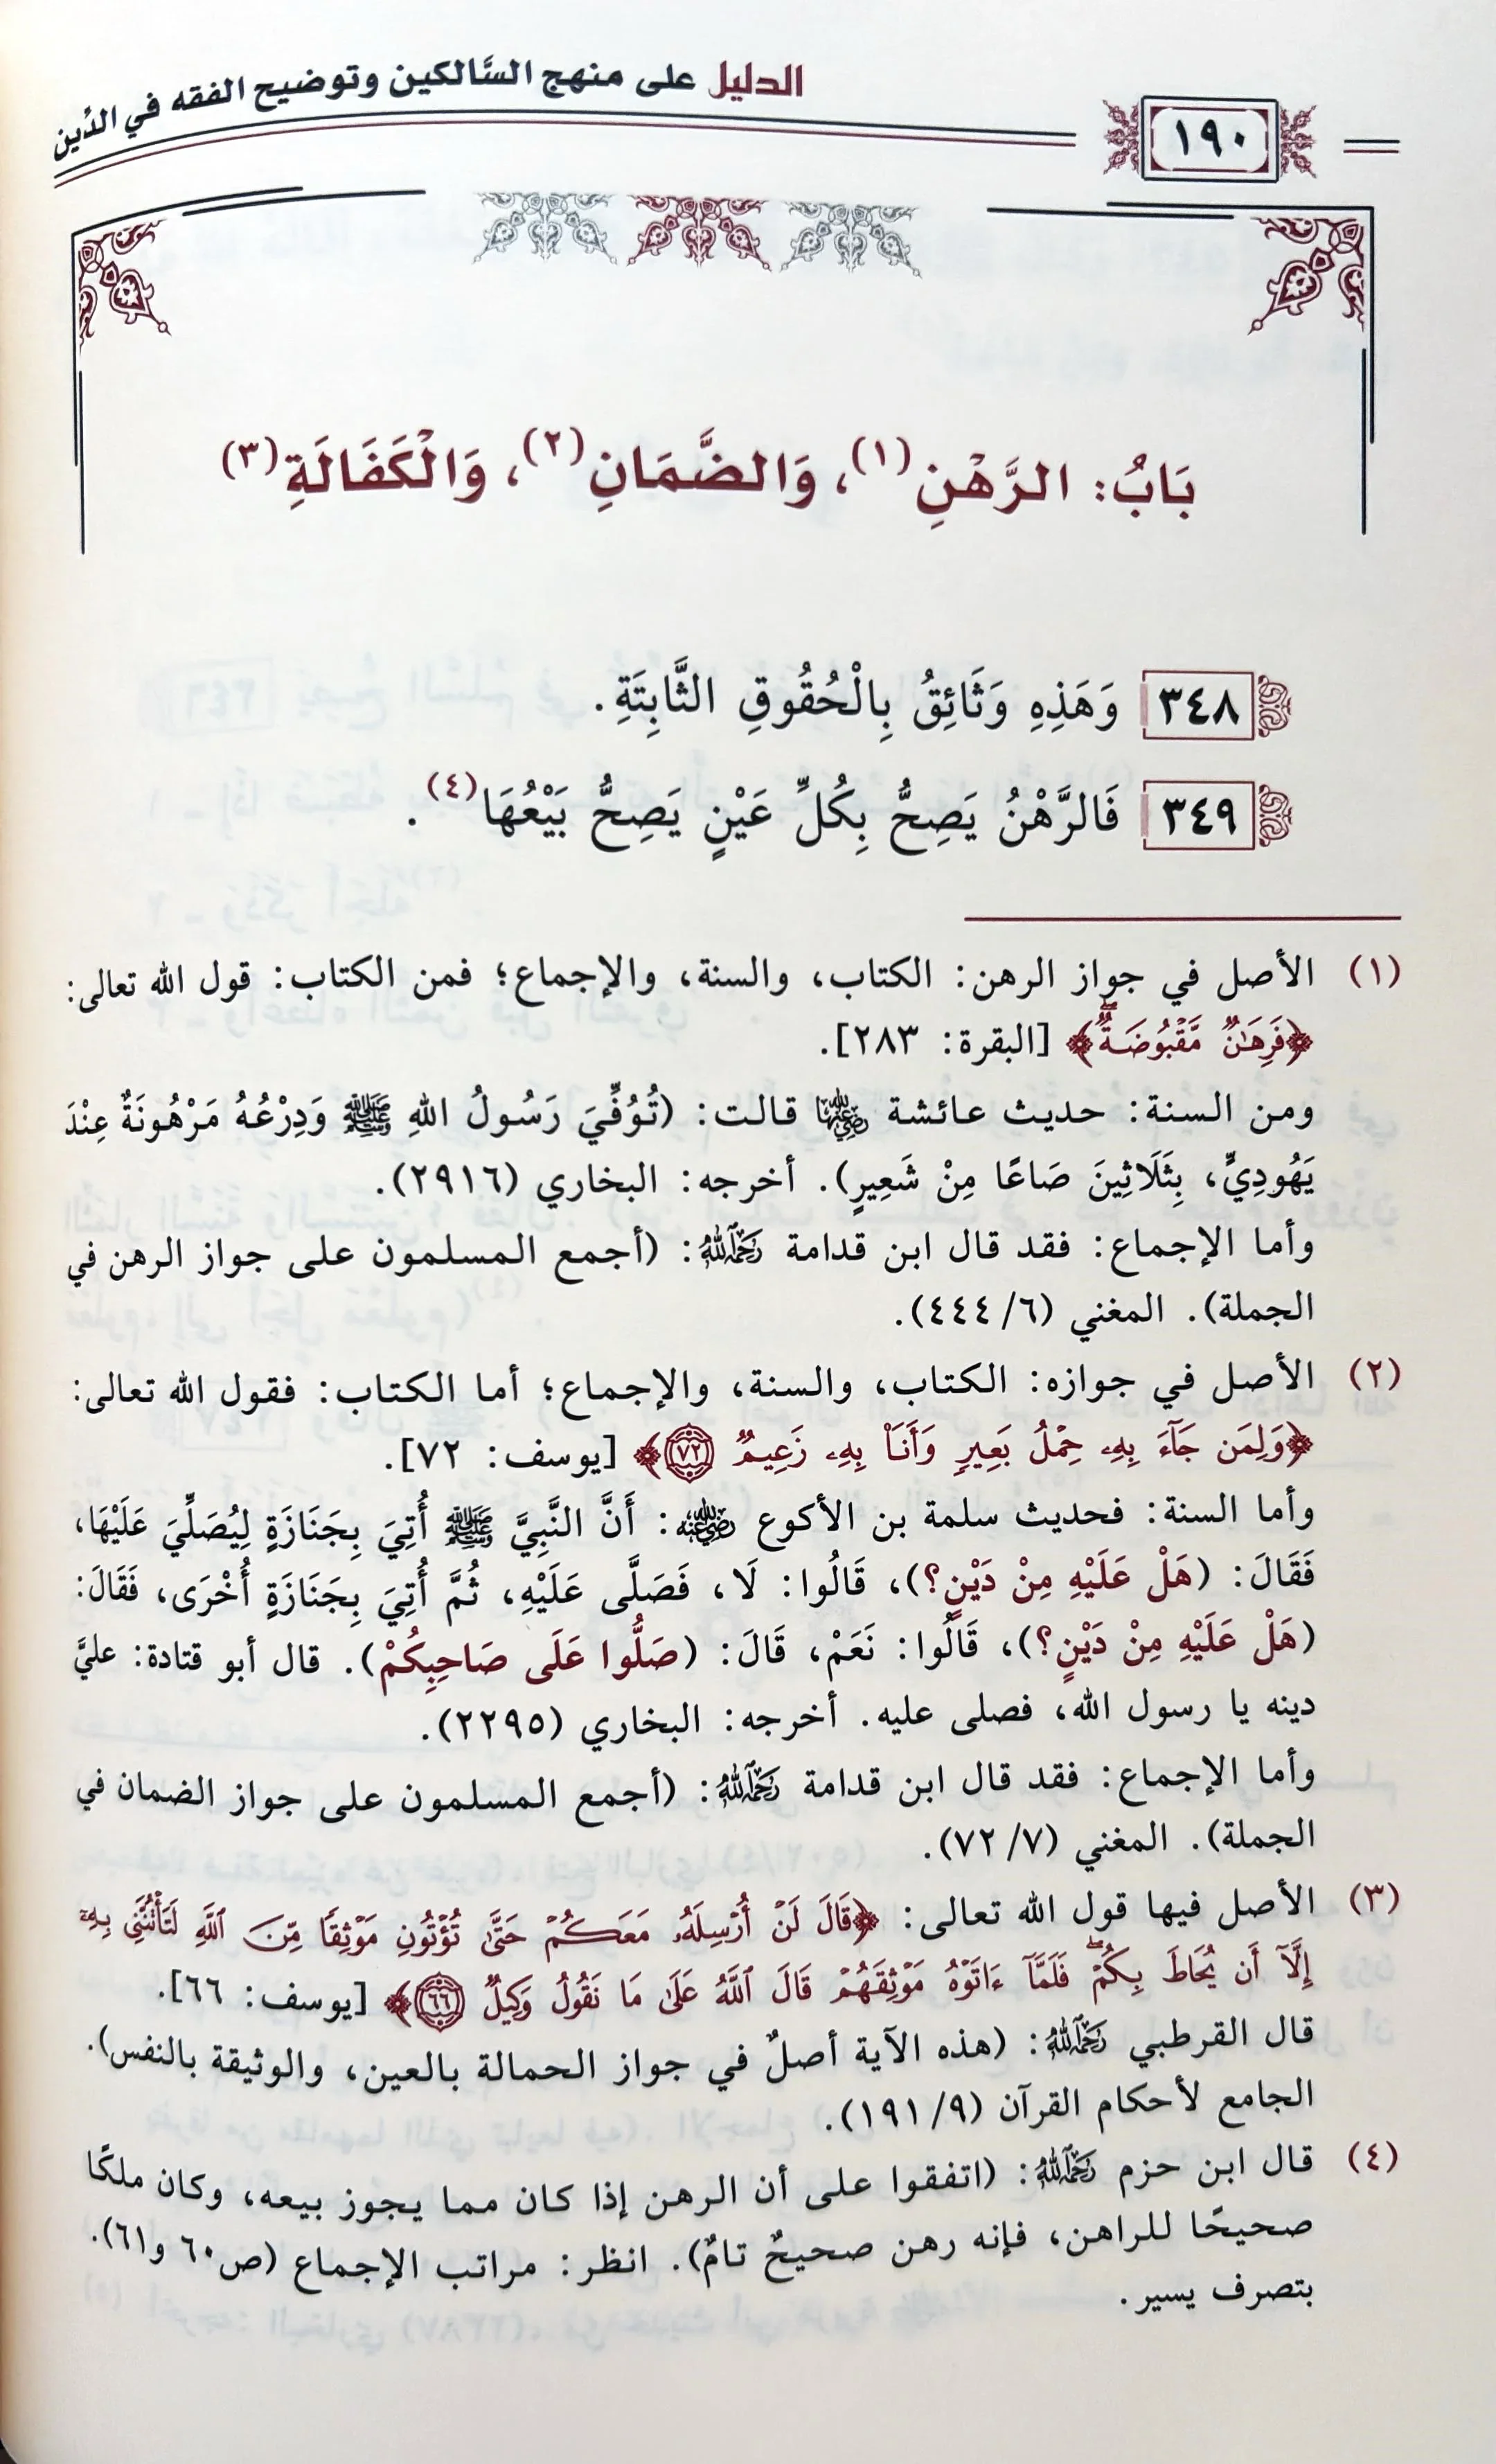 الدليل على منهج السَّالكين وتوضيح الفقه في الدِّين
١٩٠
بَابُ: الرَّهْنِ(١)، وَالضَّمَانِ(٢)، وَالْكَفَالَةِ(٣)
٣٤٨ وَهَذِهِ وَثَائِقُ بِالْحُقُوقِ الثَّابِتَةِ.
٣٤٩ فَالرَّهْنُ يَصِحُّ بِكُلِّ عَيْنٍ يَصِحُّ بَيْعُهَا(٤).
(١) الأصل في جواز الرهن: الكتاب، والسنة، والإجماع؛ فمن الكتاب: قول الله تعالى:
﴿فَرِهَٰنٌ مَّقْبُوضَةٌۖ﴾ [البقرة: ٢٨٣].
ومن السنة: حديث عائشة رضي الله عنها قالت: (تُوُفِّيَ رَسُولُ اللهِ ﷺ وَدِرْعُهُ مَرْهُونَةٌ عِنْدَ
يَهُودِيٍّ، بِثَلَاثِينَ صَاعًا مِنْ شَعِيرٍ). أخرجه: البخاري (٢٩١٦).
وأما الإجماع: فقد قال ابن قدامة رحمه الله: (أجمع المسلمون على جواز الرهن في
الجملة). المغني (٦/ ٤٤٤).
(٢) الأصل في جوازه: الكتاب، والسنة، والإجماع؛ أما الكتاب: فقول الله تعالى:
﴿وَلِمَن جَآءَ بِهِۦ حِمْلُ بَعِيرٍ وَأَنَا۠ بِهِۦ زَعِيمٌ ٧٢﴾ [يوسف: ٧٢].
وأما السنة: فحديث سلمة بن الأكوع رضي الله عنه: أَنَّ النَّبِيَّ ﷺ أُتِيَ بِجَنَازَةٍ لِيُصَلِّيَ عَلَيْهَا،
فَقَالَ: (هَلْ عَلَيْهِ مِنْ دَيْنٍ؟)، قَالُوا: لَا، فَصَلَّى عَلَيْهِ، ثُمَّ أُتِيَ بِجَنَازَةٍ أُخْرَى، فَقَالَ:
(هَلْ عَلَيْهِ مِنْ دَيْنٍ؟)، قَالُوا: نَعَمْ، قَالَ: (صَلُّوا عَلَى صَاحِبِكُمْ). قال أبو قتادة: عليَّ
دينه يا رسول الله، فصلى عليه. أخرجه: البخاري (٢٢٩٥).
وأما الإجماع: فقد قال ابن قدامة رحمه الله: (أجمع المسلمون على جواز الضمان في
الجملة). المغني (٧/ ٧٢).
(٣) الأصل فيها قول الله تعالى: ﴿قَالَ لَنْ أُرْسِلَهُۥ مَعَكُمْ حَتَّىٰ تُؤْتُونِ مَوْثِقًا مِّنَ ٱللَّهِ لَتَأْتُنَّنِى بِهِۦٓ
إِلَّآ أَن يُحَاطَ بِكُمْۖ فَلَمَّآ ءَاتَوْهُ مَوْثِقَهُمْ قَالَ ٱللَّهُ عَلَىٰ مَا نَقُولُ وَكِيلٌ ٦٦﴾ [يوسف: ٦٦].
قال القرطبي رحمه الله: (هذه الآية أصلٌ في جواز الحمالة بالعين، والوثيقة بالنفس).
الجامع لأحكام القرآن (٩/ ١٩١).
(٤) قال ابن حزم رحمه الله: (اتفقوا على أن الرهن إذا كان مما يجوز بيعه، وكان ملكًا
صحيحًا للراهن، فإنه رهن صحيحٌ تامٌ). انظر: مراتب الإجماع (ص٦٠ و٦١).
بتصرف يسير.